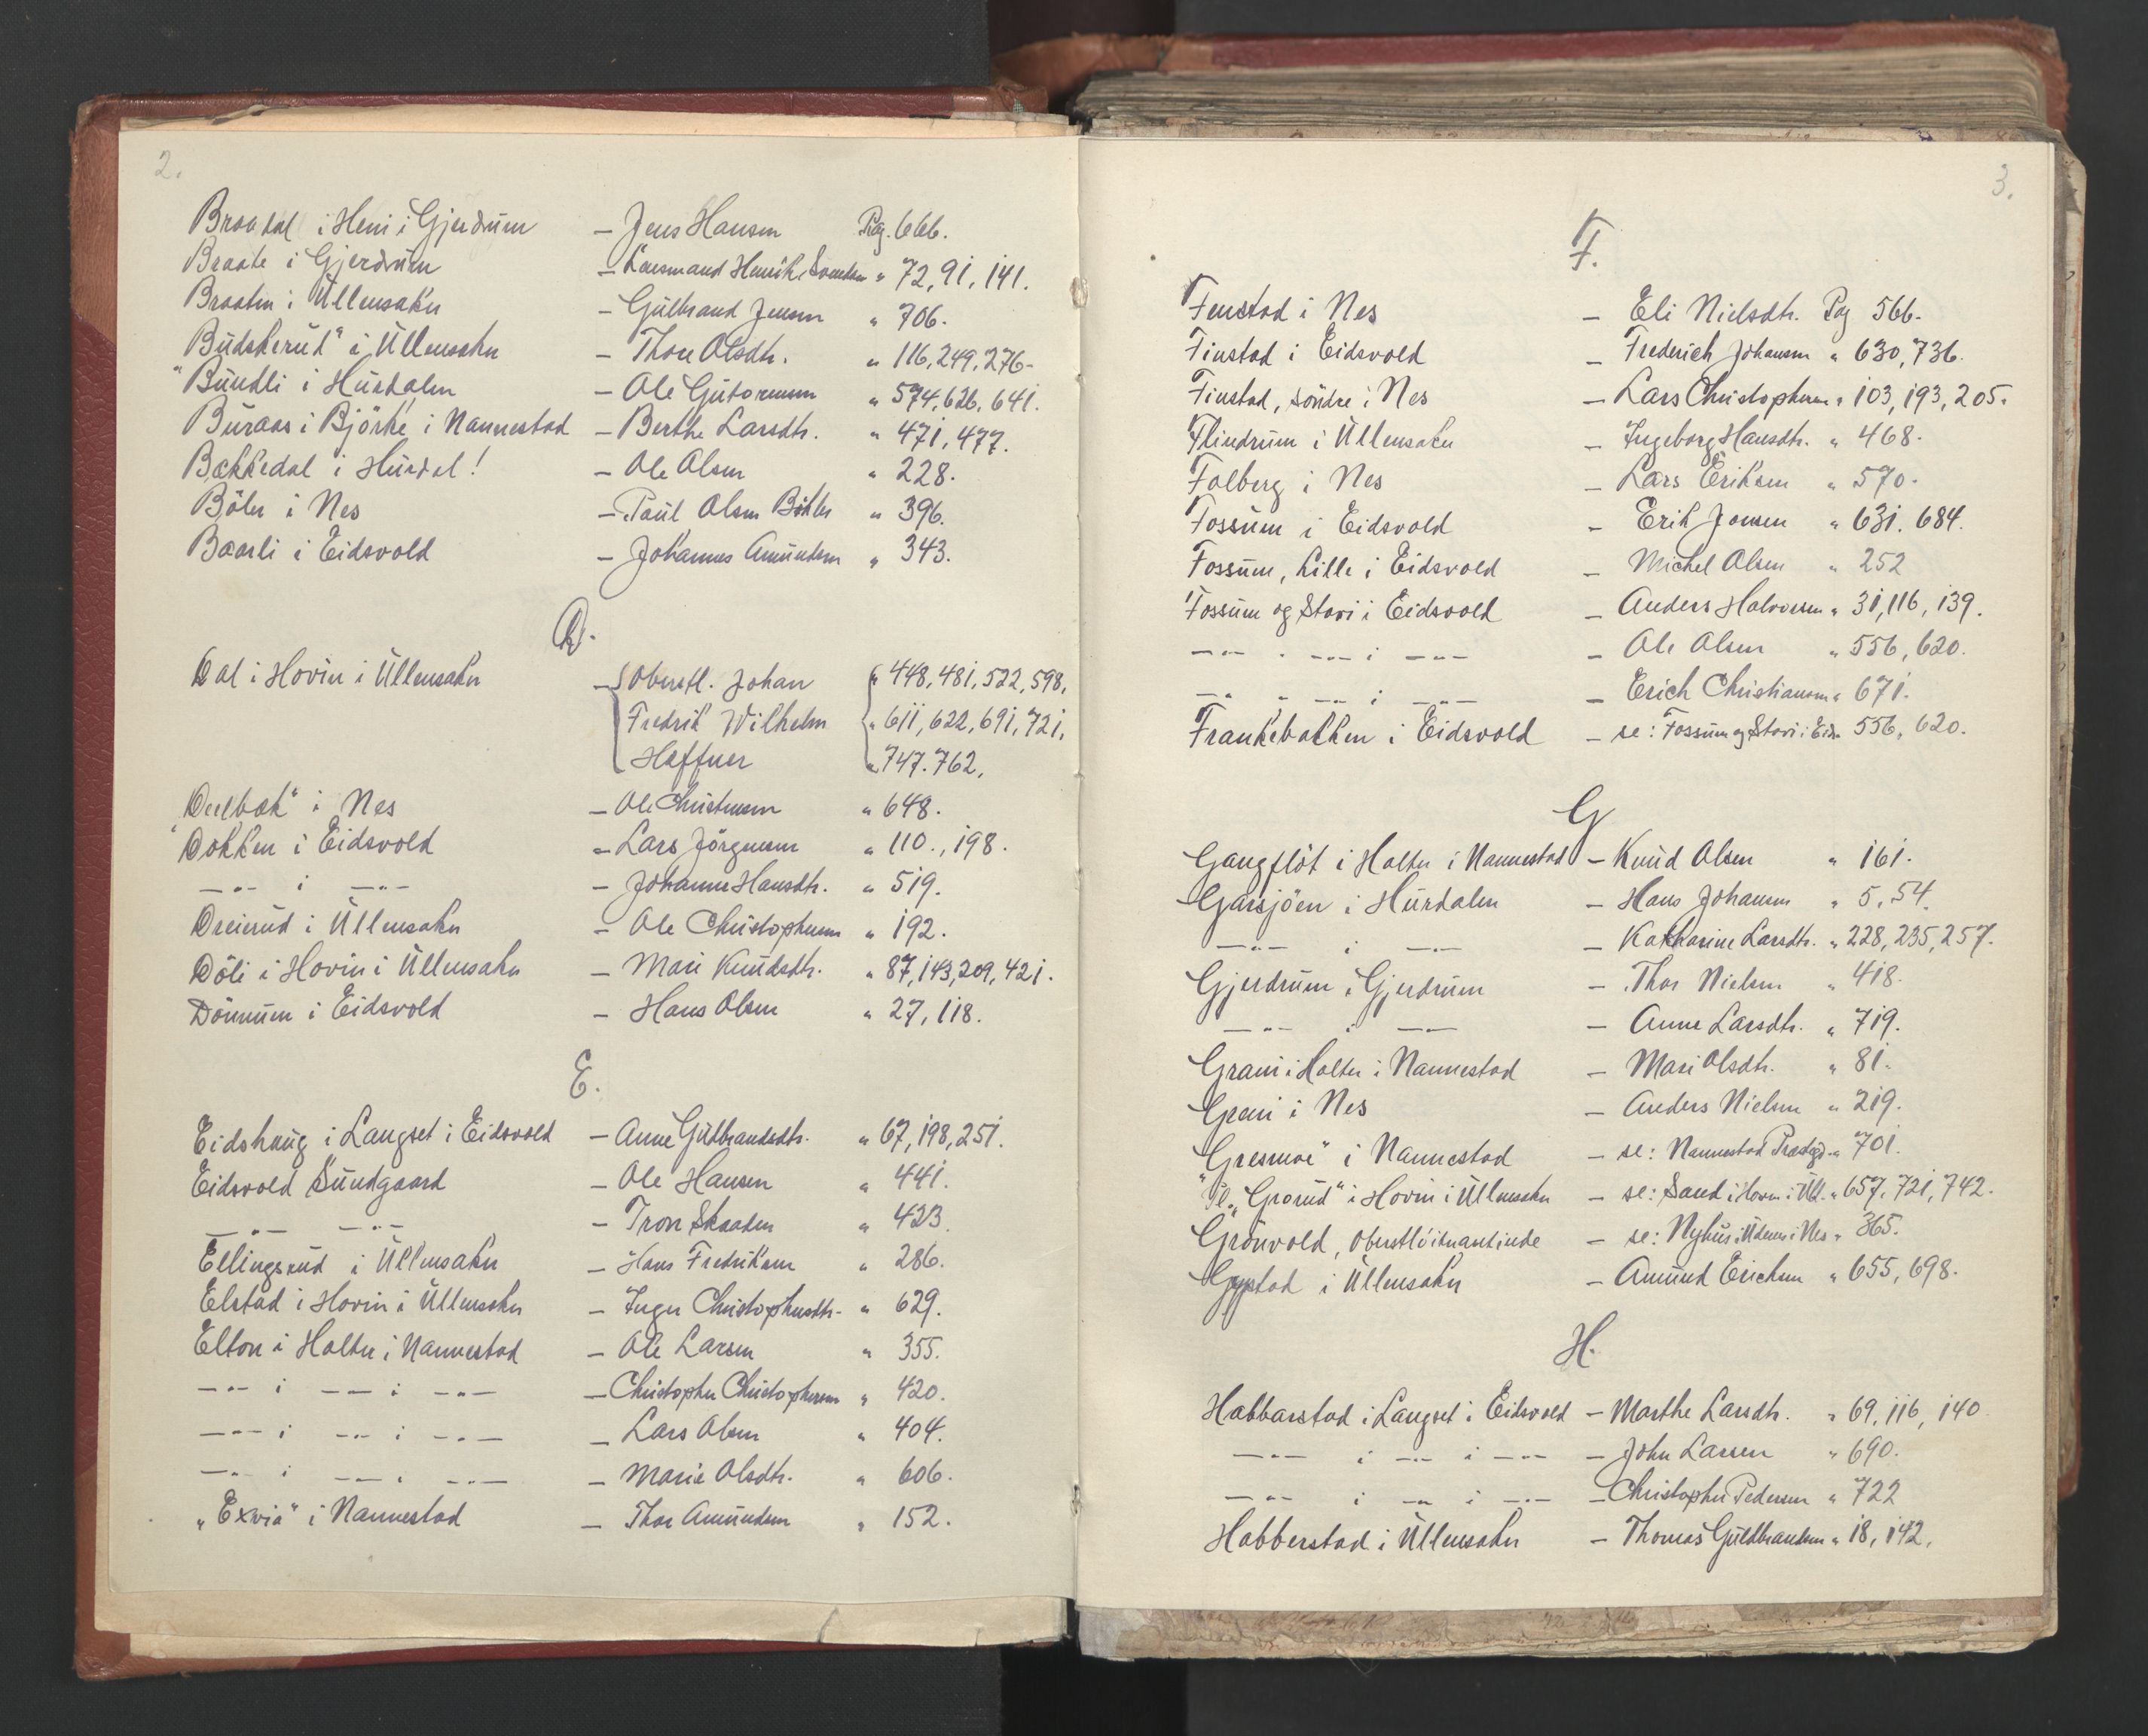 2.
Braadal i Heni i Gjerdrum — Jens Hansen Pag. 666.
Braate i Gjerdrum — Lensmand Henrik Svendsen " 72, 91, 141.
Braaten i Ullensaker — Gulbrand Jensen " 706.
"Budskerud" i Ullensaker — Thore Olsdtr. " 116, 249, 276-
"Bundli i Hurdalen — Ole Gutormsen " 574, 626, 641.
Buraas i Björke i Nannestad — Berthe Larsdtr. " 471, 477.
Bækkedal i Hurdal! — Ole Olsen " 228.
Böler i Nes — Paul Olsen Böhler " 396.
Baarli i Eidsvold — Johannes Amundsen " 343.
D.
Dal i Hovin i Ullensaker — Oberstl. Johan " 448, 481, 522, 598,
Fredrik Wilhelm " 611, 622, 691, 721,
Haffner " 747. 762.
"Deelbæk" i Nes — Ole Christensen " 648.
Dokken i Eidsvold — Lars Jörgensen " 110., 198.
—"— i —"— — Johanne Hansdtr. " 519.
Dreierud i Ullensaker — Ole Christophersen " 192.
Döli i Hovin i Ullensaker — Mari Knudsdtr. " 87, 143, 209, 421.
Dönnum i Eidsvold — Hans Olsen " 27, 118.
E.
Eidshaug i Langset i Eidsvold — Anne Guldbrandsdtr. " 67, 198, 251.
Eidsvold Sundgaard — Ole Hansen " 441.
—"— —"— — Tron Skaaden " 423
Ellingsrud i Ullensaker — Hans Fredriksen " 286.
Elstad i Hovin i Ullensaker — Inger Christophersdtr. " 629.
Elton i Holter i Nannestad — Ole Larsen " 355.
—"— i —"— i —"— — Christopher Christophersen " 420.
—"— i —"— i —"— — Lars Olsen " 404.
—"— i —"— i —"— — Marie Olsdtr. " 606.
"Exvia" i Nannestad — Thor Amundsen " 152.
3.
F.
Fenstad i Nes — Eli Nielsdtr. Pag 566.
Finstad i Eidsvold — Frederich Johansen " 630, 736.
Finstad, söndre i Nes — Lars Christophersen " 103, 193, 205.
Flindrum i Ullensaker — Ingeborg Hansdtr. " 468.
Folberg i Nes — Lars Eriksen " 570.
Fossum i Eidsvold — Erik Jonsen " 631. 684.
Fossum, Lille i Eidsvold — Michel Olsen " 252
Fossum og Stavi i Eidsvold — Anders Halvorsen " 31, 116, 139.
—"— " —"— i —"— — Ole Olsen " 556, 620.
—"— " —"— i —"— — Erich Christiansen " 671.
Frankebakken i Eidsvold — se: Fossum og Stavi i Eids. 556, 620.
G
Gangflöt i Holter i Nannestad — Knud Olsen " 161.
Garsjöen i Hurdalen — Hans Johansen " 5, 54.
—"— i —"— — Katharine Larsdtr. " 228, 235, 257.
Gjerdrum i Gjerdrum — Thor Nielsen " 418.
—"— i —"— — Anne Larsdtr. " 719.
Grani i Holter i Nannestad — Mari Olsdtr. " 81.
Greni i Nes — Anders Nielsen " 219.
"Gresmoe" i Nannestad — se: Nannestad Præstgd. " 701.
Pl. "Grorud" i Hovin i Ullensaker — se: Sand i Hovin i Ull. " 657, 721, 742.
Grönvold, oberstlöitnantinde — se: Nyhus i Udenes i Nes " 365.
Gystad i Ullensaker — Amund Erichsen " 655, 698.
H.
Habbarstad i Langset i Eidsvold — Marthe Larsdtr. " 69, 116, 140
—"— i —"— i —"— — John Larsen " 690.
—"— i —"— i —"— — Christopher Pedersen " 722
Habberstad i Ullensaker — Thomas Guldbrandsen " 18, 142.